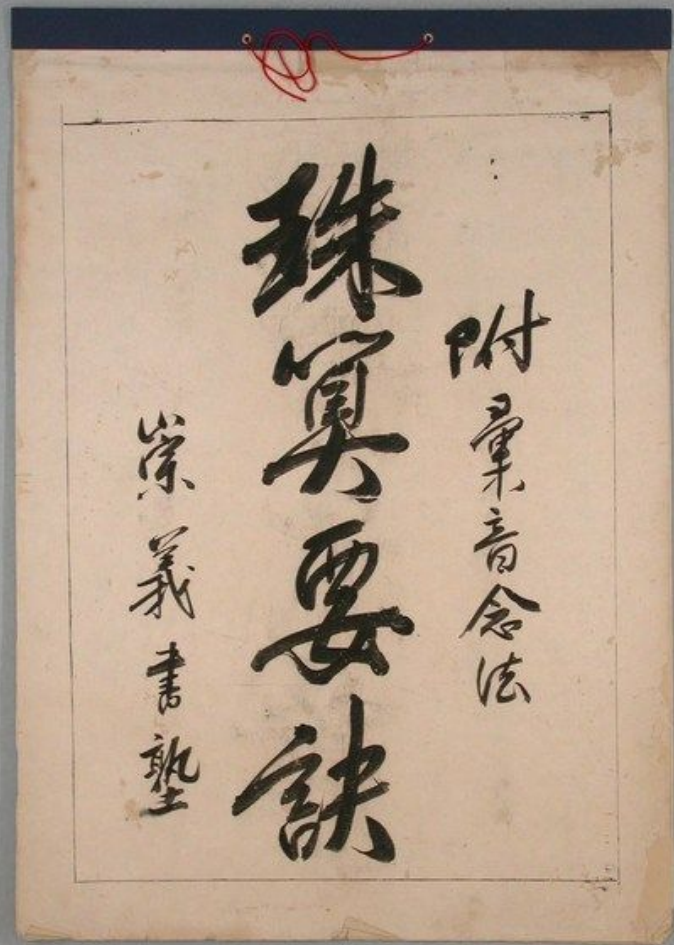 附彙音念法
珠算要訣
崇義書塾